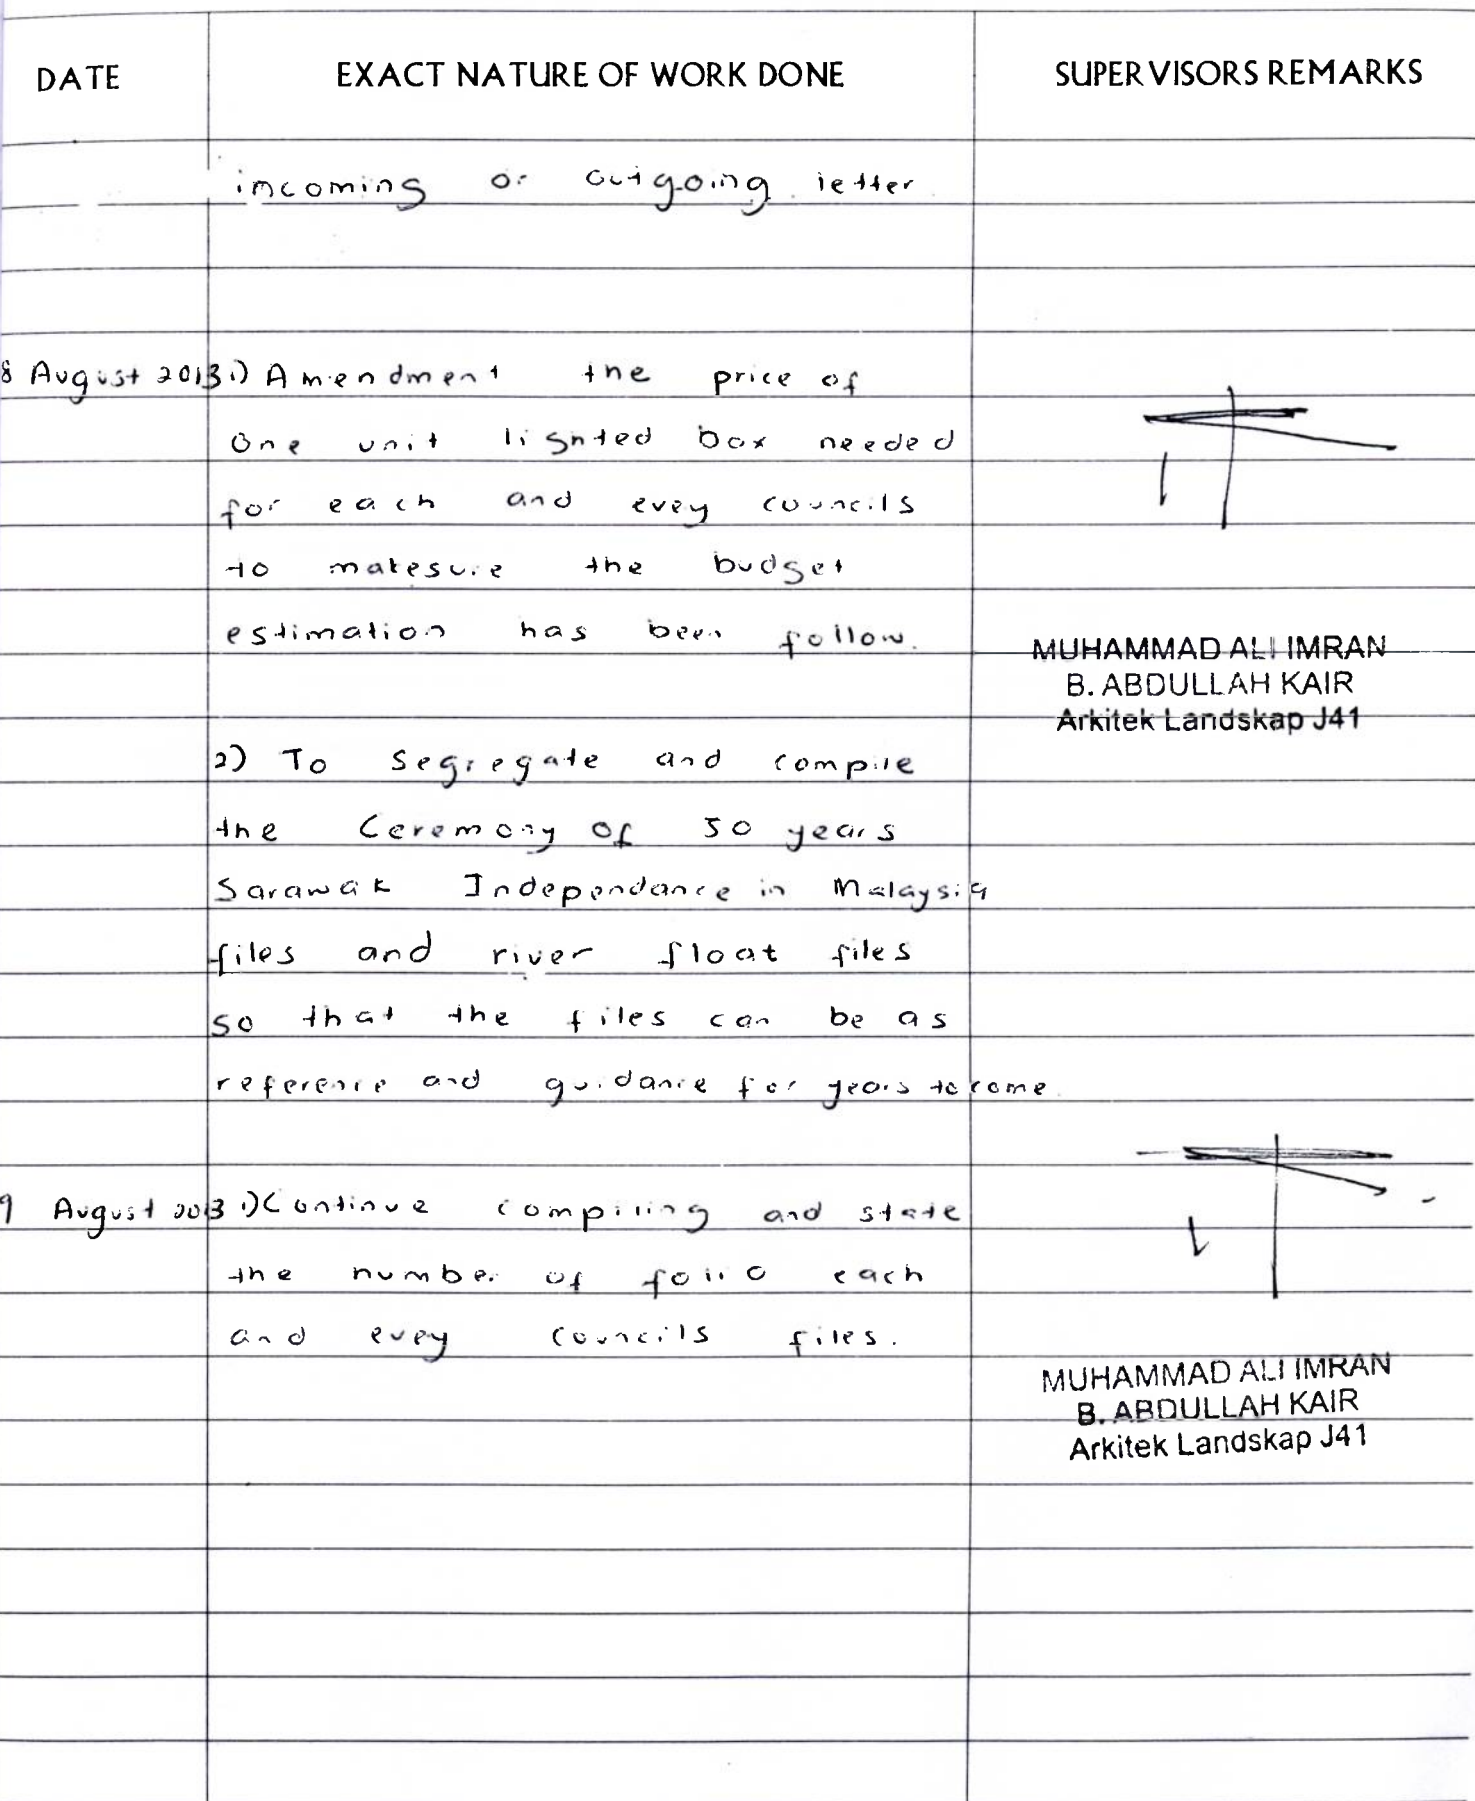 DATE EXACT NATURE OF WORK DONE SUPERVISORS REMARKS
incoming or outgoing letter
8 August 2013 1) Amendment the price of
one unit lighted box needed
for each and evey councils
to makesure the budget
estimation has been follow.
MUHAMMAD ALI IMRAN
B. ABDULLAH KAIR
Arkitek Landskap J41
2) To segregate and compile
the Ceremony of 50 years
Sarawak Independance in Malaysia
files and river float files
so that the files can be as
reference and guidance for years to come.
9 August 2013 1) Continue compiling and state
the number of folio each
and evey councils files.
MUHAMMAD ALI IMRAN
B. ABDULLAH KAIR
Arkitek Landskap J41